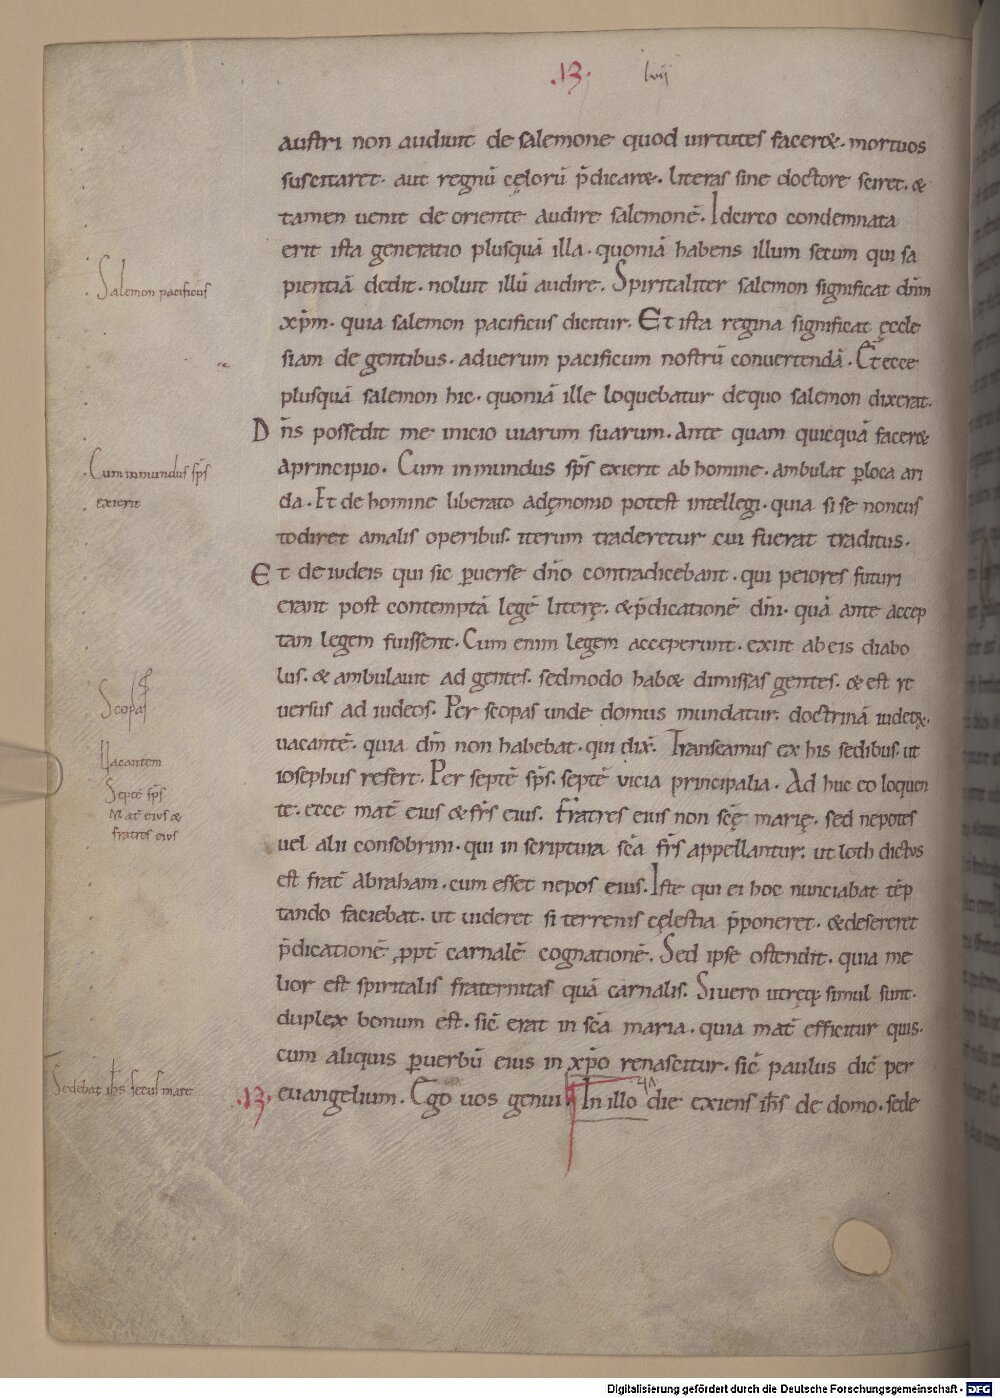 .13. lvij
austri non audiuit de salemone quod uirtutes faceret. mortuos
suscitaret. aut regnū cęlorū p̄dicaret. literas sine doctore sciret. &
tamen uenit de oriente audire salemonē. Idcirco condemnata
erit ista generatio plusquā illa. quoniā habens illum secum qui sa
Salemon pacificus
pientiā dedit. noluit illū audire. Spiritaliter salemon significat dn̄m
xp̄m. quia salemon pacificus dicitur. Et ista regina significat ęccle
siam de gentibus. aduerum pacificum nostrū conuertendā. Et ecce
plusquā salemon hic. quoniā ille loquebatur dequo salemon dixerat.
Dn̄s possedit me inicio uiarum suarum. Ante quam quicquā faceret
Cum inmundus sp̄s
aprincipio. Cum inmundus sp̄s exierit ab homine. ambulat ꝑloca ari
exierit
da. Et de homine liberato adęmonio potest intellegi. quia si se noncus
todiret amalis operibus. iterum traderetur cui fuerat traditus.
Et de iudeis qui sic ꝑuerse dn̄o contradicebant. qui peiores futuri
erant post contemptā legē literę. & p̄dicationē dn̄i. quā ante accep
tam legem fuissent. Cum enim legem acceperunt. exiit ab eis diabo
lus. & ambulauit ad gentes. sedmodo habet dimissas gentes. & est re
Scopas
uersus ad iudeos. Per scopas unde domus mundatur. doctrinā iudeoꝝ.
Uacantem
uacantē. quia dm̄ non habebat. qui dix̄. Transeamus ex his sedibus. ut
Septē sp̄s
iosephus refert. Per septē sp̄s. septē uicia principalia. Ad huc eo loquen
Mat̄ eius &
te. ecce mat̄ eius & fr̄s eius. Fr̄atres eius non sc̄ę marię. sed nepotes
fratres eius
uel alii consobrini. qui in scriptura sc̄a fr̄s appellantur. ut loth dictus
est frat̄ abraham. cum esset nepos eius. Iste qui ei hoc nunciabat tēp
tando faciebat. ut uideret si terrenis cęlestia p̄poneret. & desereret
p̄dicationē ꝓpt̄ carnalē cognationē. Sed ipse ostendit. quia me
lior est spiritalis fraternitas quā carnalis. Siuero utręq; simul sunt.
duplex bonum est. sic̄ erat in sc̄a maria. quia mat̄ efficitur quis.
cum aliquis ꝑuerbū eius in xp̄o renascitur. sic̄ paulus dic̄ per
Sedebat ih̄s secus mare
.13. euangelium. Ego uos genui In illo die exiens ih̄s de domo. sede
Digitalisierung gefördert durch die Deutsche Forschungsgemeinschaft - DFG